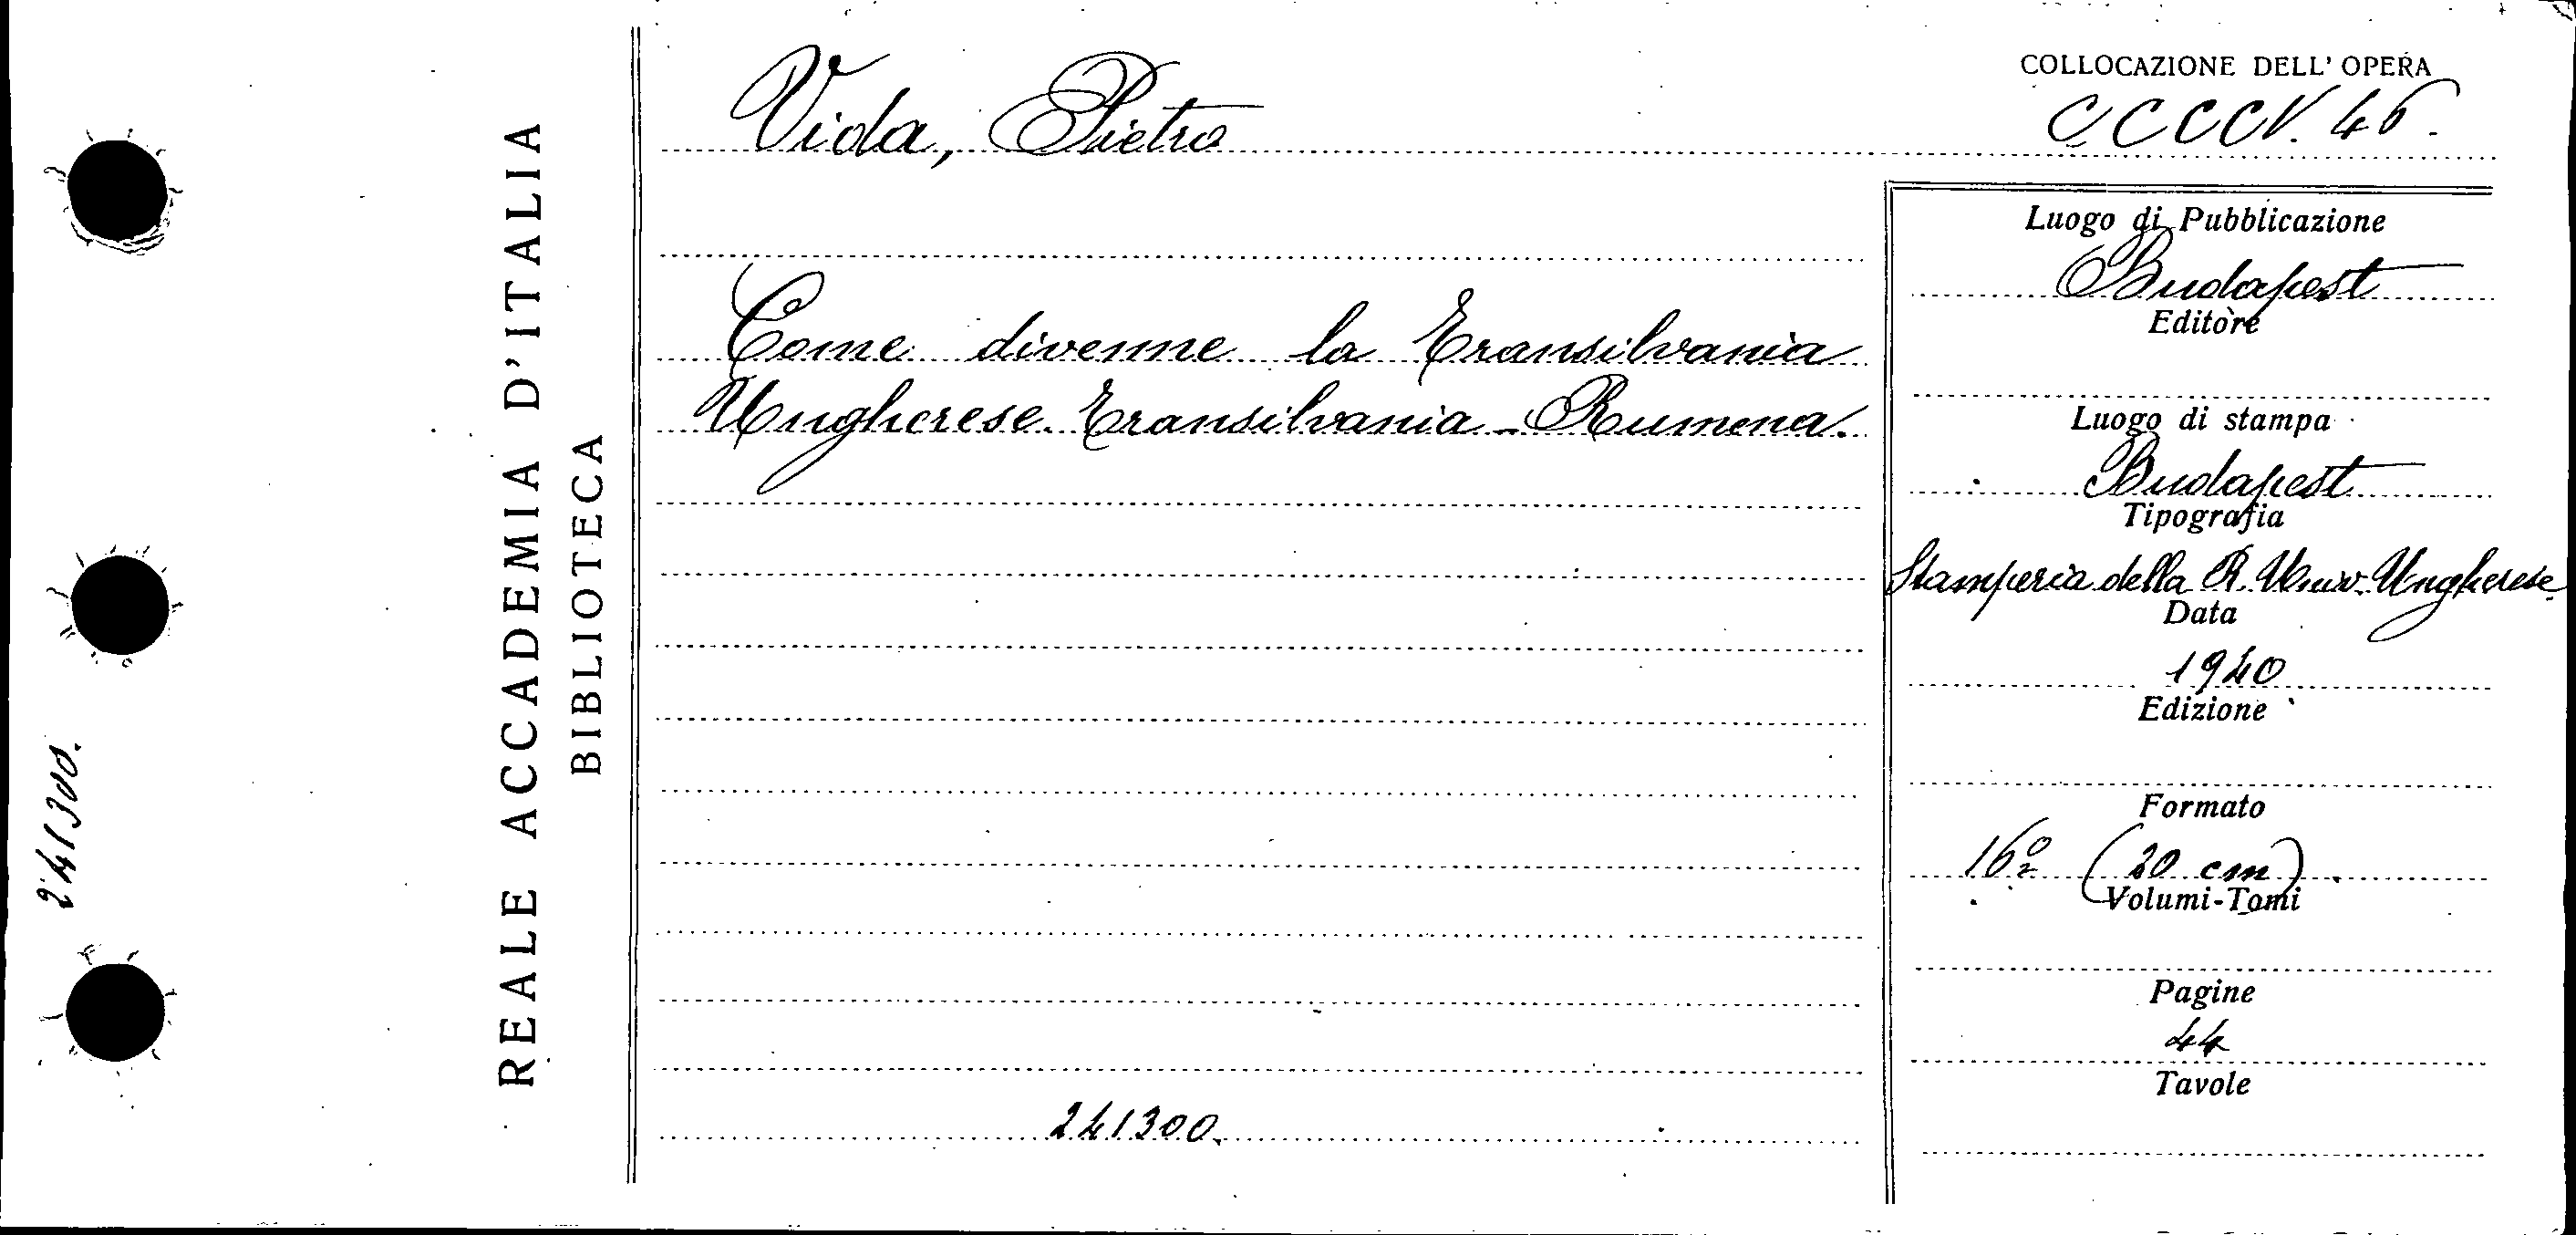 241300.
REALE ACCADEMIA D'ITALIA
BIBLIOTECA
Vida, Pietro
Come divenne la Transilvania
Ungherese Transilvania - Rumena.
241300.
COLLOCAZIONE DELL' OPERA
CCCCV. 46.
Luogo di Pubblicazione
Budapest
Editore
Luogo di stampa
Budapest
Tipografia
Stamperia della R. Univ. Ungherese
Data
1940
Edizione
Formato
16º (20 cm)
Volumi-Tomi
Pagine
44
Tavole